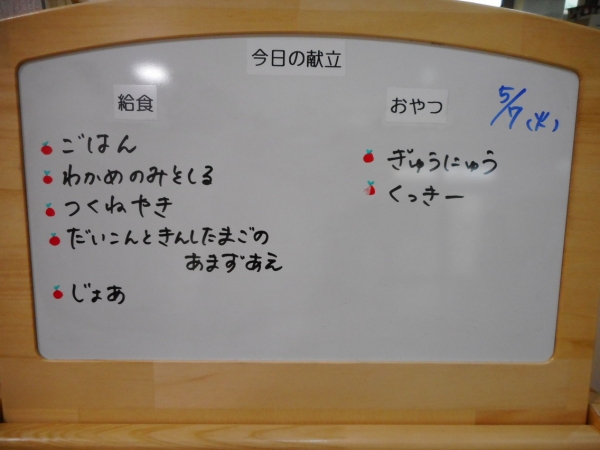 今日の献立
5/7(火)
給食
ごはん
わかめのみそしる
つくねやき
だいこんときんしたまごの
あまずあえ
じょあ
おやつ
ぎゅうにゅう
くっきー